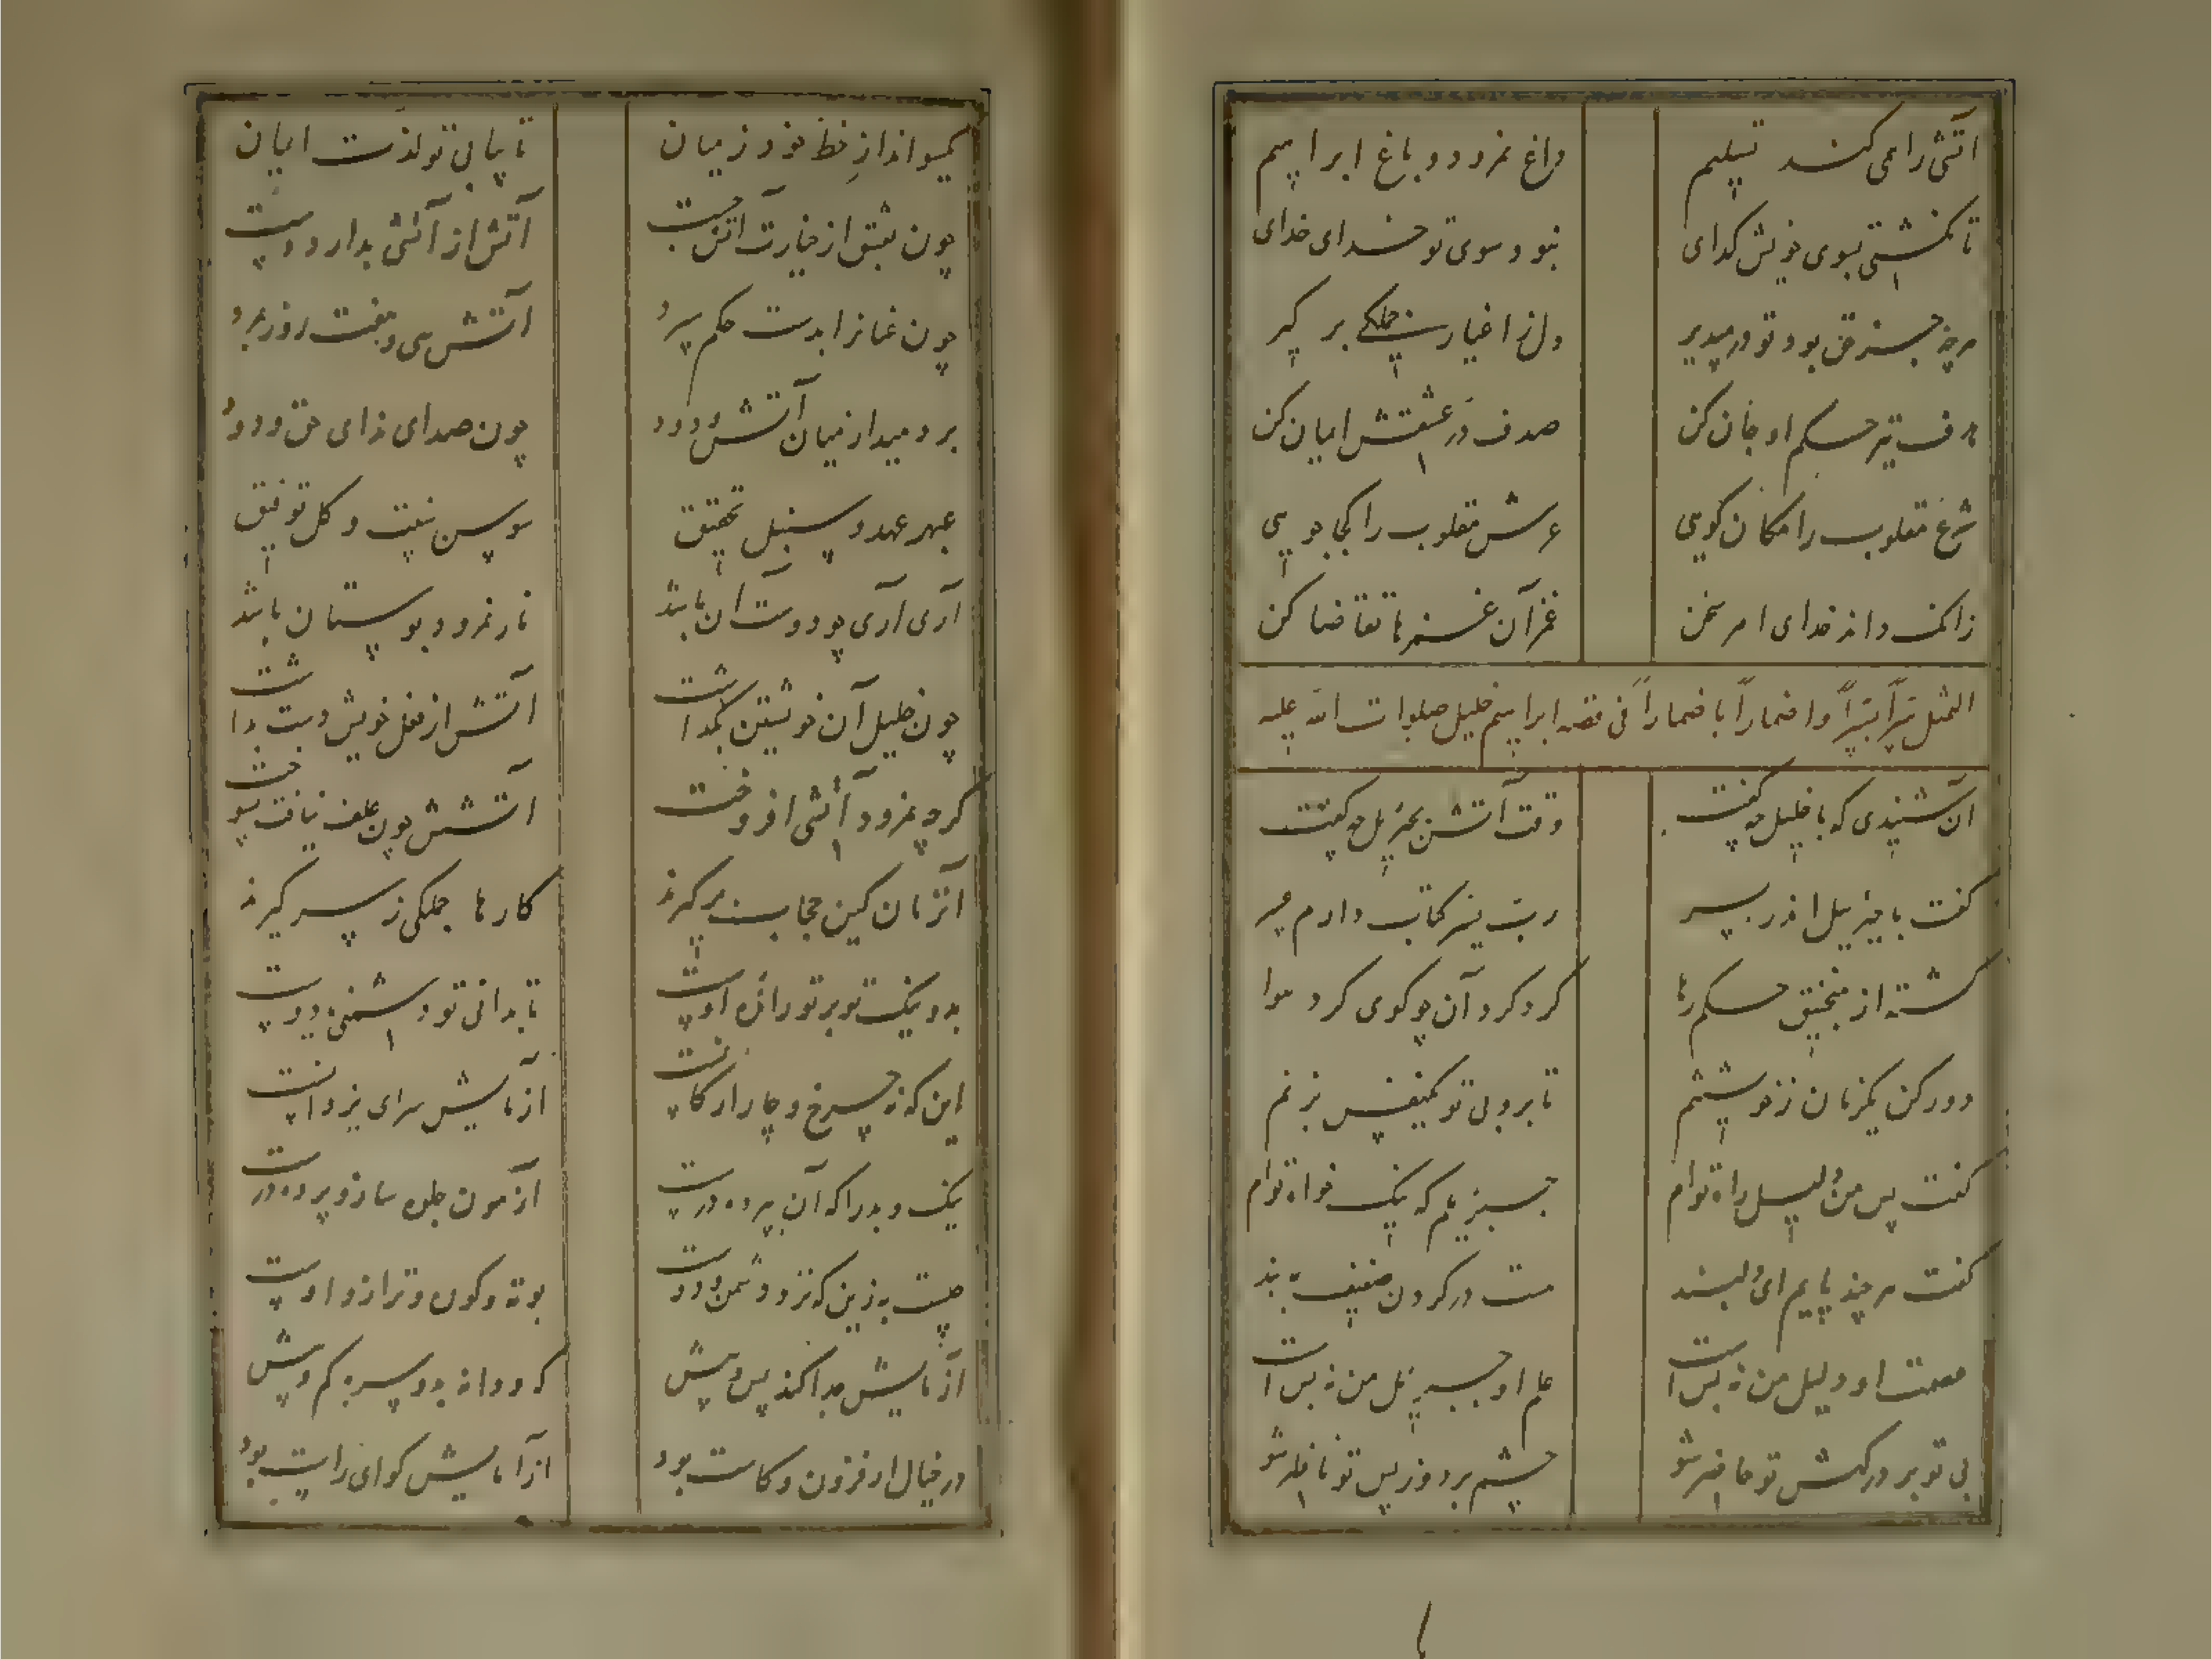 آتشی را همی کند تسلیم داغ نمرود و باغ ابراهیم
تا نکشتی بسوی خویش کدای نبود سوی تو خدای خدای
هرچه جز حق بود تو در مپذیر دل ز اغیار جملکی بر کیر
هدف تیر حکم او جان کن صدف در عشقش ایمان کن
شرع مقلوب را مکان کویی عرش مقلوب را کجا جویی
زانک داند خدای امر سخن غمز آن غمزها تقاضا کن
التمثل فی قصه ابراهیم خلیل صلوات الله علیه
آن شنیدی که با خلیل چه کفت وقت آتش بجبرئیل چه کفت
کفت با جبرئیل اندر سر
کشته از منجنیق حکم رها کرد کرد آن چو کوی کرد هوا
دور کن یکزمان ز خویشتنم تا برو بی تو یکنفس بزنم
کفت پس من دلیل راه توام جبرئیلم که نیک خواه توام
کفت هر چند پایم ای دلبند هست در کردن ضعیف به بند
عصمت او دلیل من نه بس است علم او جبرئیل من نه بس است
بی تو بر درکهش تو حاضر شو چشم بردوز پس تو ناظر شو
یکسو انداز حظ خود ز میان تا بیابی تو لذت ایمان
چون بعشق از خیارت آتش جست آتش از آتشی بدارد دست
چون عنانرا بدست حکم سپرد آتش سی و هفت روز بمرد
بر دمید از میان آتش و دود چون صدای ندای حق و دود
عبهر عهد و سنبل تحقیق سوسن بیت و کل توفیق
آری آری چو دوست آن باشد نار نمرود بوستان باشد
چون خلیل آن خویشتن بکذاشت آتش از فعل خویش دست بداشت
کرچه نمرود آتشی افروخت آتشش چون علف نیافت بسوخت
آنزمان کین حجاب برکیرند کارها جملکی ز سر کیرند
بد و نیک تو بر تو رانده اوست تا بدانی تو دشمنی ز دوست
این که نه چرخ و چار ارکانست آزمایش سرای یزدانست
نیک و بد را که آن پرده درست آزمون جلوه ساز و پرده درست
چیست به زین که نزد دشمن و دوست بوته و کوره و ترازو اوست
آزمایش جدا کند پس و پیش که و دانه بد و سره کم و بیش
در خیال ار فزون و کاست بود آزمایش کوای راست بود